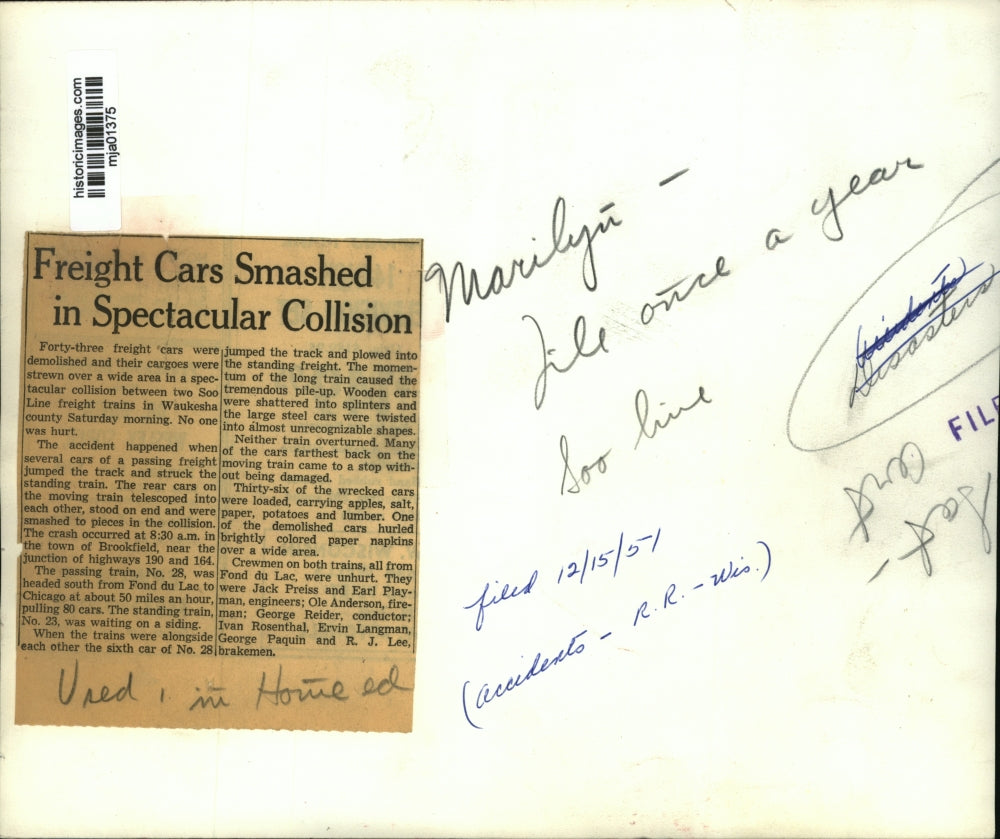 historicimages.com
mja01375
Freight Cars Smashed
in Spectacular Collision
Forty-three freight cars were
demolished and their cargoes were
strewn over a wide area in a spec-
tacular collision between two Soo
Line freight trains in Waukesha
county Saturday morning. No one
was hurt.
The accident happened when
several cars of a passing freight
jumped the track and struck the
standing train. The rear cars on
the moving train telescoped into
each other, stood on end and were
smashed to pieces in the collision.
The crash occurred at 8:30 a.m. in
the town of Brookfield, near the
junction of highways 190 and 164.
The passing train, No. 28, was
headed south from Fond du Lac to
Chicago at about 50 miles an hour,
pulling 80 cars. The standing train,
No. 23, was waiting on a siding.
When the trains were alongside
each other the sixth car of No. 28
jumped the track and plowed into
the standing freight. The momen-
tum of the long train caused the
tremendous pile-up. Wooden cars
were shattered into splinters and
the large steel cars were twisted
into almost unrecognizable shapes.
Neither train overturned. Many
of the cars farthest back on the
moving train came to a stop with-
out being damaged.
Thirty-six of the wrecked cars
were loaded, carrying apples, salt,
paper, potatoes and lumber. One
of the demolished cars hurled
brightly colored paper napkins
over a wide area.
Crewmen on both trains, all from
Fond du Lac, were unhurt. They
were Jack Preiss and Earl Play-
man, engineers; Ole Anderson, fire-
man; George Reider, conductor;
Ivan Rosenthal, Ervin Langman,
George Paquin and R. J. Lee,
brakemen.
Used in Home ed
Marilyn -
File once a year
Soo line
filed 12/15/51
(accidents - R.R. - Wis.)
accidents
Disasters
FILE